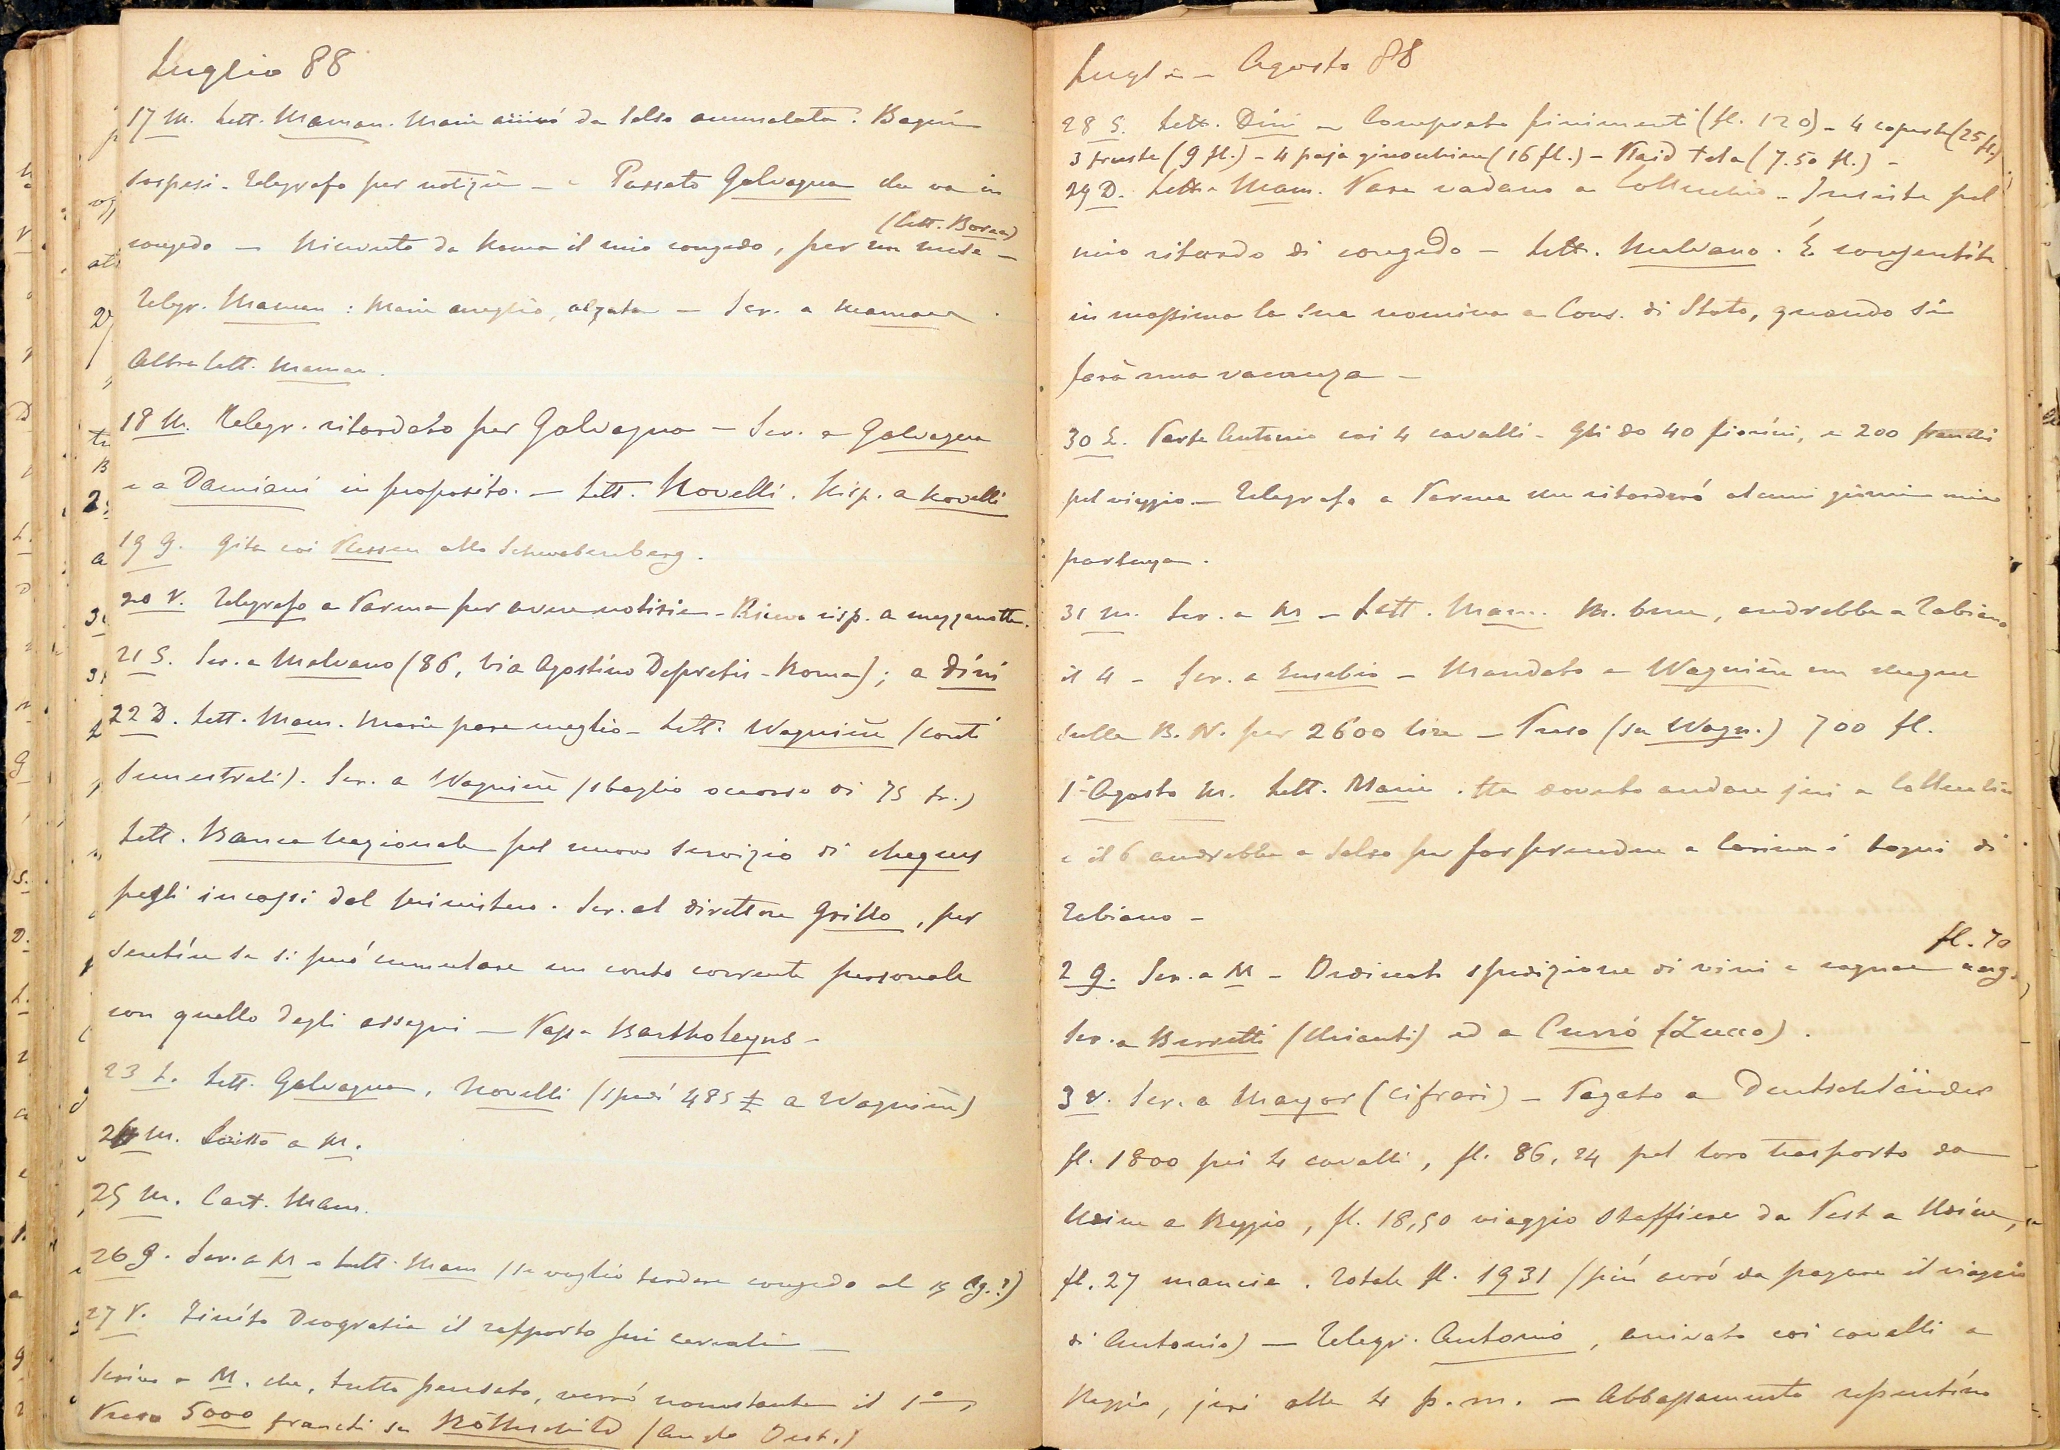 Luglio 88
17 M. Lett. Maman. Marie arrivò da Salso ammalata. Bagni
sospesi - Telegrafo per notizie - Passato Galvagna che va in
(Lett. Borea)
congedo - Ricevuto da Roma il mio congedo, per un mese -
Telegr. Maman : Marie meglio, alzata - Scr. a Maman.
Altra lett. Maman.
18 M. Telegr. ritardato per Galvagna - Scr. a Galvagna
e a Damiani in proposito. - Lett. Novelli. Risp. a Novelli
19 G. Gita coi Plessen allo Schwabenberg.
20 V. Telegrafo a Parma per avere notizie - Ricevo risp. a mezzanotte.
21 S. Scr. a Malvano (86, Via Agostino Depretis - Roma); a Dini
22 D. Lett. Mam. Marie pare meglio - Lett. Wagnière (conti
semestrali). Scr. a Wagnière (sbaglio occorso di 75 fr.)
Lett. Banca Nazionale pel nuovo servizio di cheques
pegli incassi del ministero. Scr. al direttore Grillo, per
sentire se si può cumulare un conto corrente personale
con quello degli assegni - Passa Bartholeyns -
23 L. Lett. Galvagna, Novelli (spedì 485 £ a Wagnière)
24 M. Scritto a M.
25 M. Cart. Mam.
26 G. Scr. a M - Lett. Mam (se voglio tardare congedo al 15 Ag.?)
27 V. Finito Diogratia il rapporto sui cereali -
Scrivo a M. che, tutto pensato, verrò nonostante il 1º -
Preso 5000 franchi su Rothschild (Anglo Oest.)
Luglio - Agosto 88
28 S. Lett. Dini - Comprato finimenti (fl. 120) - 4 coperte (25 fl.)
3 fruste (9 fl.) - 4 paja ginocchiere (16 fl.) - Plaid tela (7.50 fl.) -
29 D. Lett. Mam. Pare vadano a Collecchio - Insiste pel
mio ritardo di congedo - Lett. Malvano. È consentita
in massima la sua nomina a Cons. di Stato, quando si
farà una vacanza -
30 L. Parte Antonio coi 4 cavalli - Gli do 40 fiorini, e 200 franchi
pel viaggio - Telegrafo a Parma che ritarderò alcuni giorni mia
partenza.
31 M. Scr. a M - Lett. Mam. M. bene, andrebbe a Tabiano
il 4 - Scr. a Eusebio - Mandato a Wagnière un cheque
sulla B. N. per 2600 lire - Preso (su Wagn.) 700 fl.
1º Agosto M. Lett. Marie. Ha dovuto andare jeri a Collecchio
e il 6 andrebbe a Salso per far prendere a Corinna i bagni di
Tabiano -
fl. 70
2 G. Scr. a M - Ordinata spedizione di vini e cognac
Scr. a Berretti (Chianti) ed a Currò (Zucco).
3 V. Scr. a Mayor (cifrari) - Pagato a Deutschländer
fl. 1800 pei 4 cavalli, fl. 86,24 pel loro trasporto da
Udine a Reggio, fl. 18,50 viaggio staffiere da Pest a Udine, e
fl. 27 mancie. Totale fl. 1931 (più avrò da pagare il viaggio
di Antonio) - Telegr. Antonio, arrivato coi cavalli a
Reggio, jeri alle 4 p.m. - Abbassamento repentino